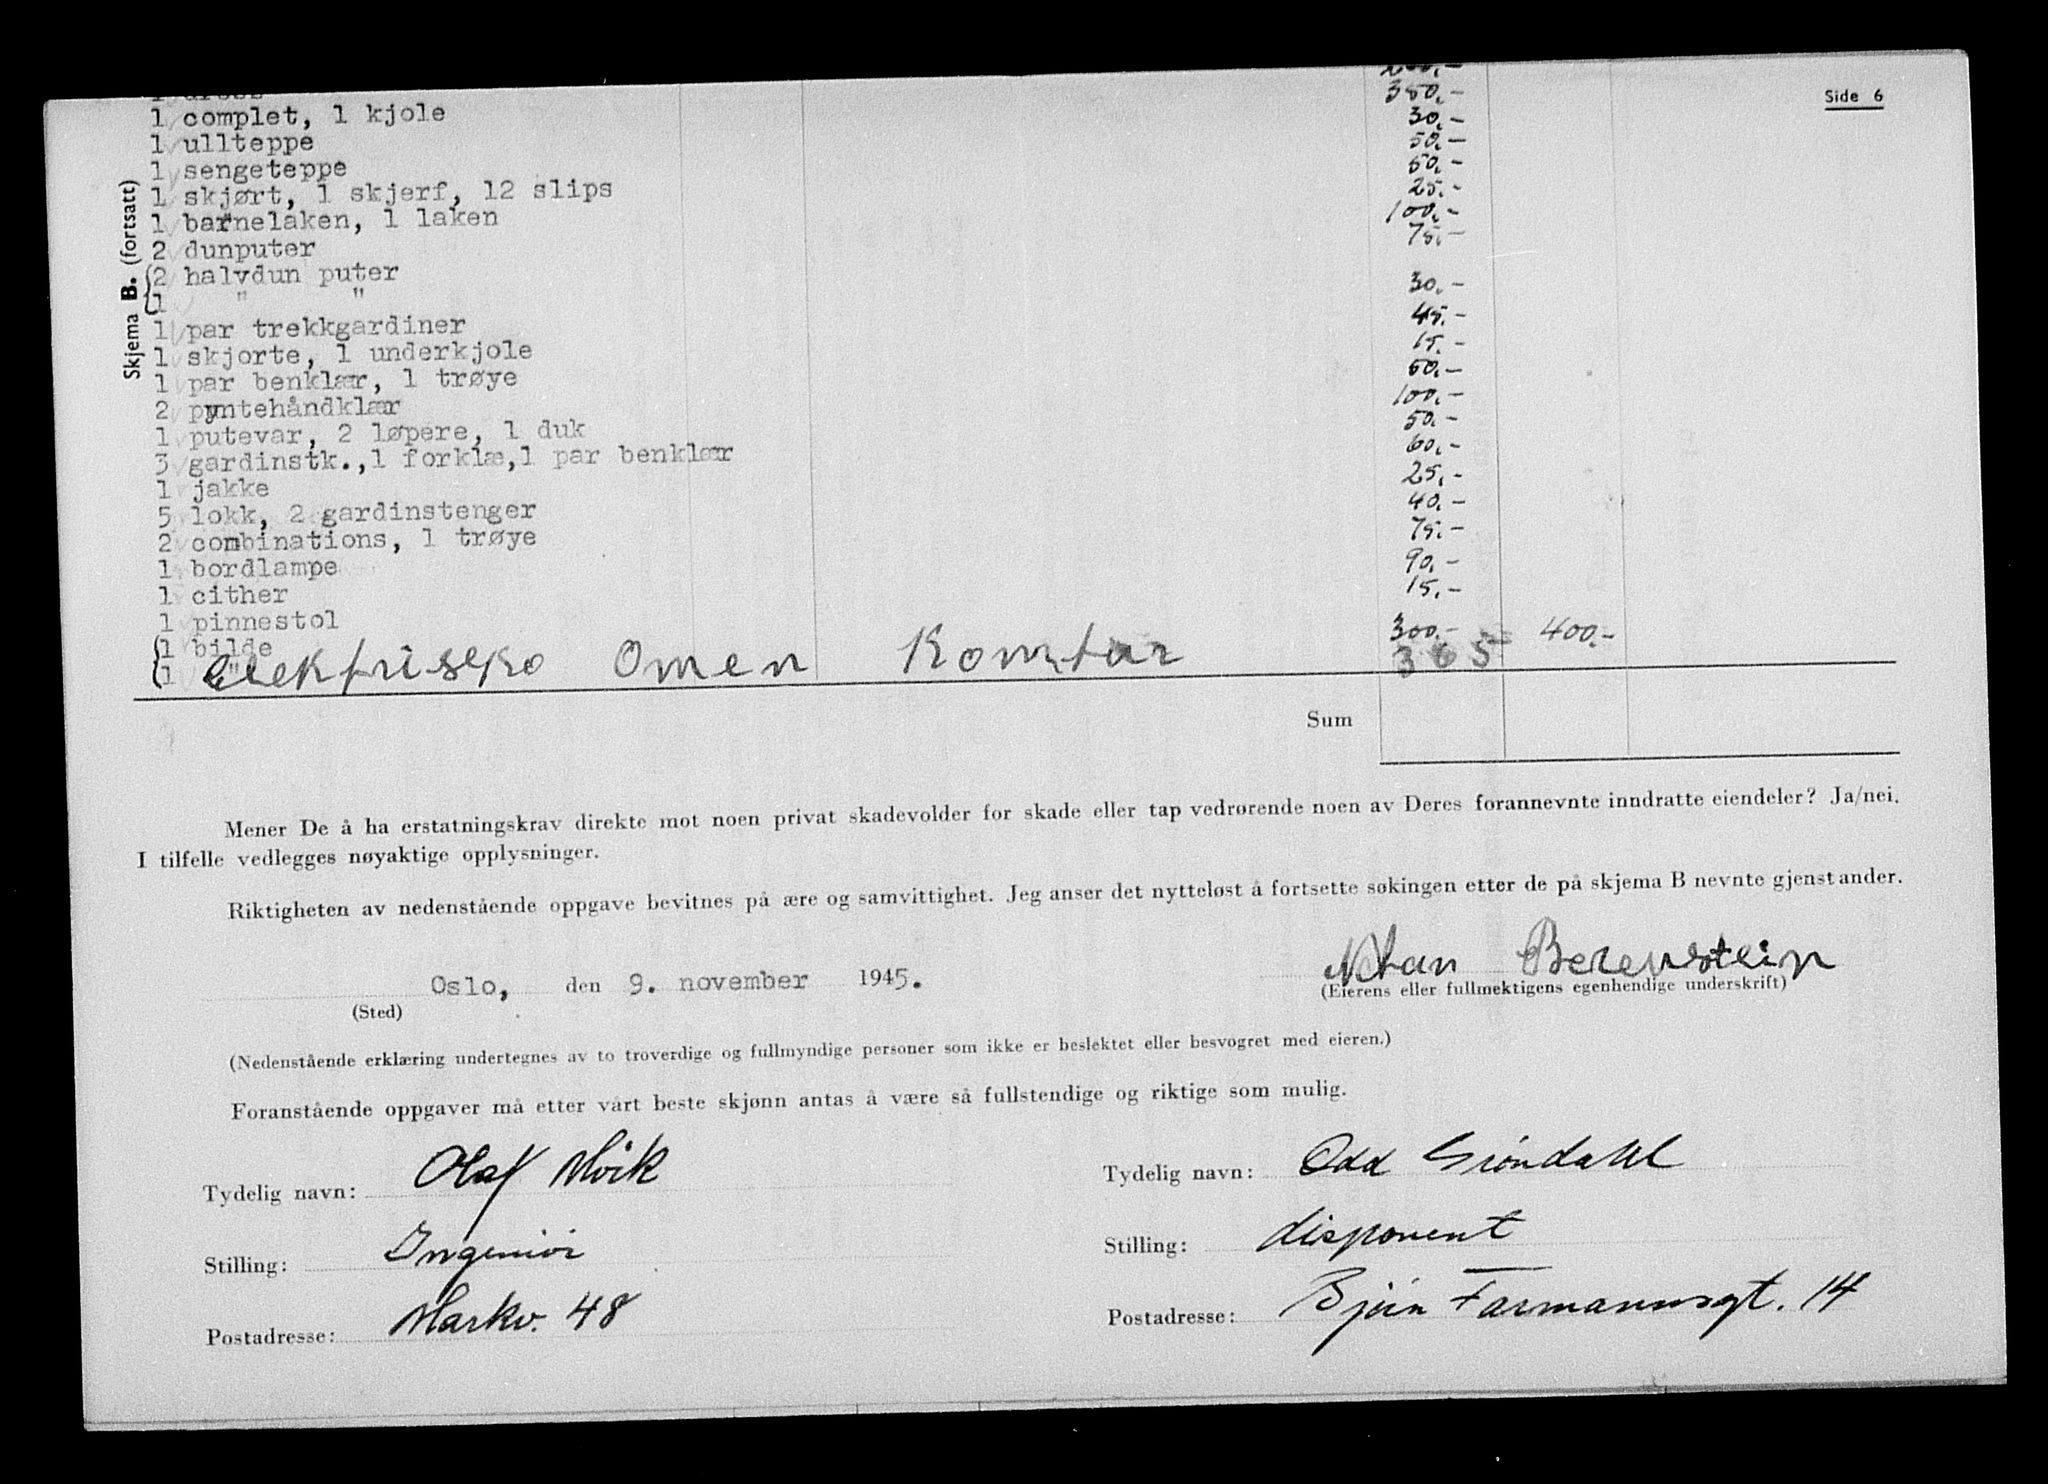 Side 6
Skjema B. (fortsatt)
200,-
1 complet, 1 kjole 350,-
1 ullteppe 30,-
1 sengeteppe 50,-
1 skjørt, 1 skjerf, 12 slips 50,-
1 barnelaken, 1 laken 25,-
2 dunputer 100,-
2 halvdun puter 75,-
1 " "
1 par trekkgardiner 30,-
1 skjorte, 1 underkjole 45,-
1 par benklær, 1 trøye 15,-
2 pyntehåndklær 50,-
1 putevar, 2 løpere, 1 duk 100,-
3 gardinstk., 1 forklæ, 1 par benklær 50,-
1 jakke 60,-
5 lokk, 2 gardinstenger 25,-
2 combinations, 1 trøye 40,-
1 bordlampe 75,-
1 cither 90,-
1 pinnestol 15,-
1 bilde 300,- 400,-
1 " Elektriseko Omen 365
Sum
Mener De å ha erstatningskrav direkte mot noen privat skadevolder for skade eller tap vedrørende noen av Deres forannevnte inndratte eiendeler? Ja/nei.
I tilfelle vedlegges nøyaktige opplysninger.
Riktigheten av nedenstående oppgave bevitnes på ære og samvittighet. Jeg anser det nytteløst å fortsette søkingen etter de på skjema B nevnte gjenstander.
Oslo, den 9. november 1945. Natan Berenstein
(Sted) (Eierens eller fullmektigens egenhendige underskrift)
(Nedenstående erklæring undertegnes av to troverdige og fullmyndige personer som ikke er beslektet eller besvogret med eieren.)
Foranstående oppgaver må etter vårt beste skjønn antas å være så fullstendige og riktige som mulig.
Tydelig navn: Olaf Moik Tydelig navn: Odd Grøndahl
Stilling: Ingeniør Stilling: disponent
Postadresse: Markv. 48 Postadresse: Bjørn Farmannsgt. 14